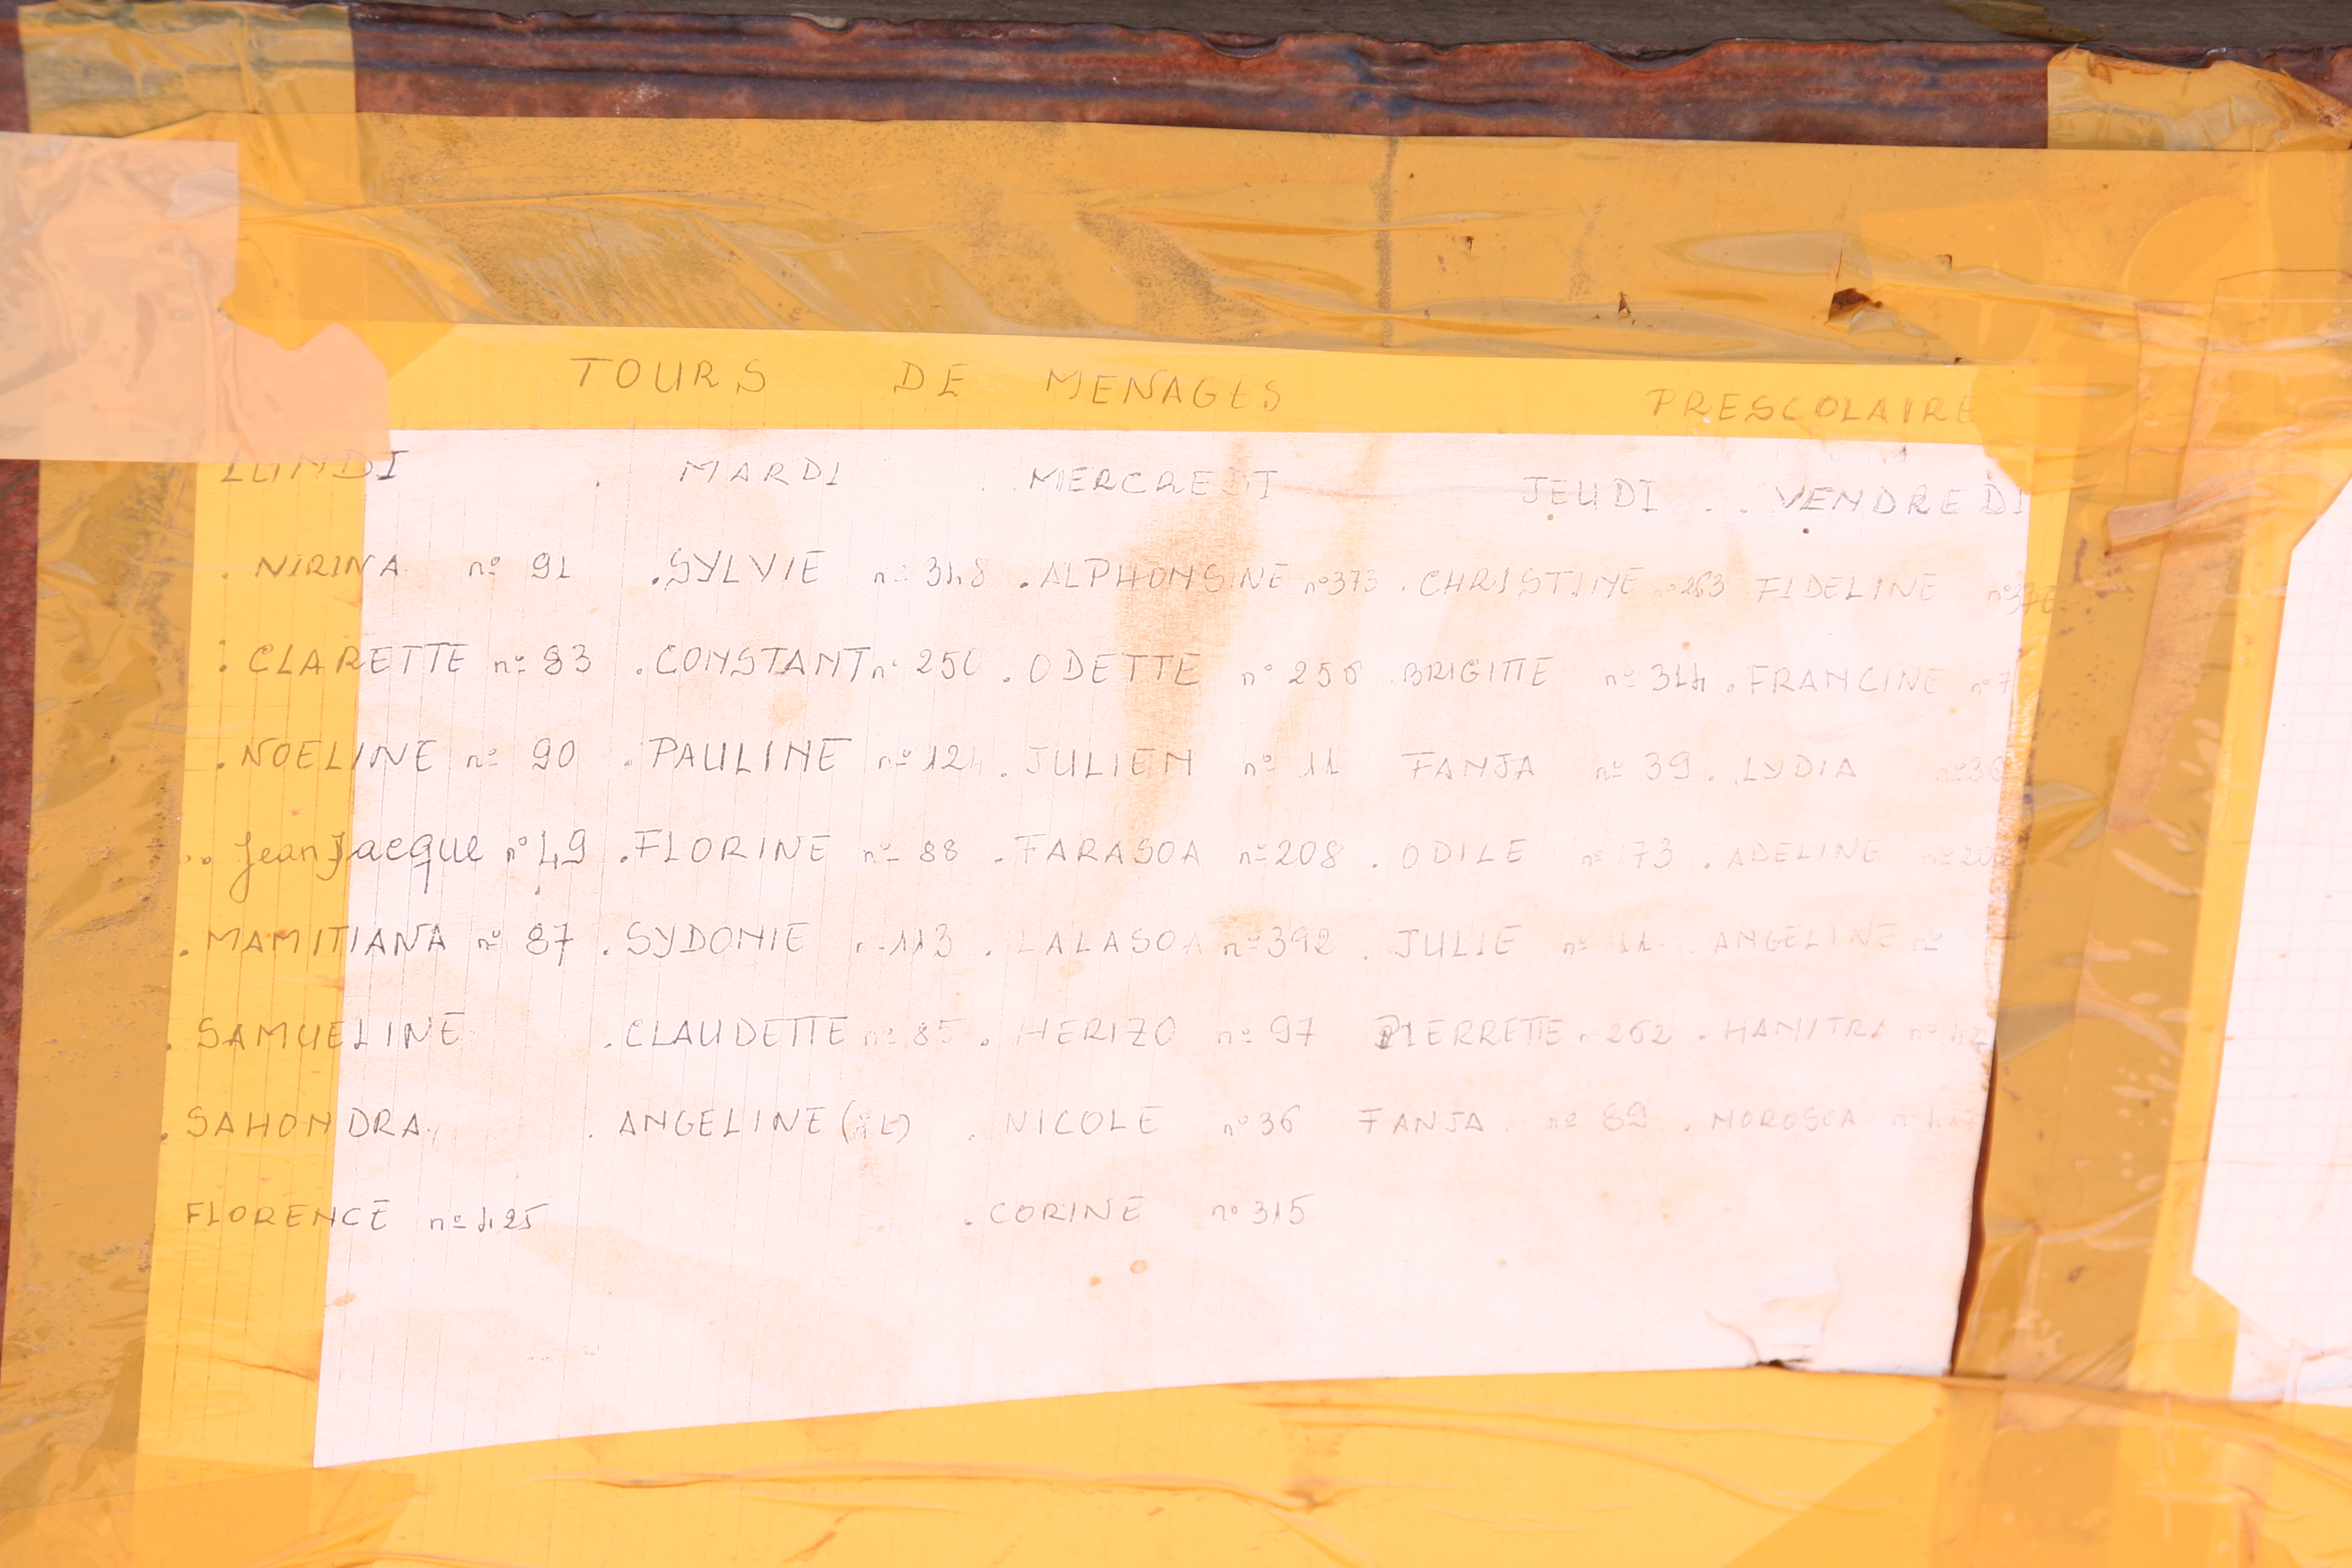 TOURS DE MENAGES PRESCOLAIRE
LUNDI . MARDI . MERCREDI JEUDI . . VENDREDI
. NIRINA nº 91 . SYLVIE nº 348 . ALPHONSINE nº 373 . CHRISTINE nº 263 FIDELINE
. CLARETTE nº 93 . CONSTANT nº 250 . ODETTE nº 256 . BRIGITTE nº 314 . FRANCINE
. NOELINE nº 90 . PAULINE nº 124 . JULIEN nº 11 FANJA nº 39 . LYDIA
. Jean Jacque nº 49 . FLORINE nº 88 . FARASOA nº 208 . ODILE nº 173 . ADELINE
. MAMITIANA nº 87 . SYDONIE nº 113 . LALASOA nº 392 . JULIE nº 11 . ANGELINE nº
. SAMUELINE . CLAUDETTE nº 85 . HERIZO nº 97 PIERRETTE nº 262 . HANITRA
. SAHONDRA . ANGELINE . NICOLE nº 36 FANJA nº 89 . NOROSOA
FLORENCE nº 425 . CORINE nº 315